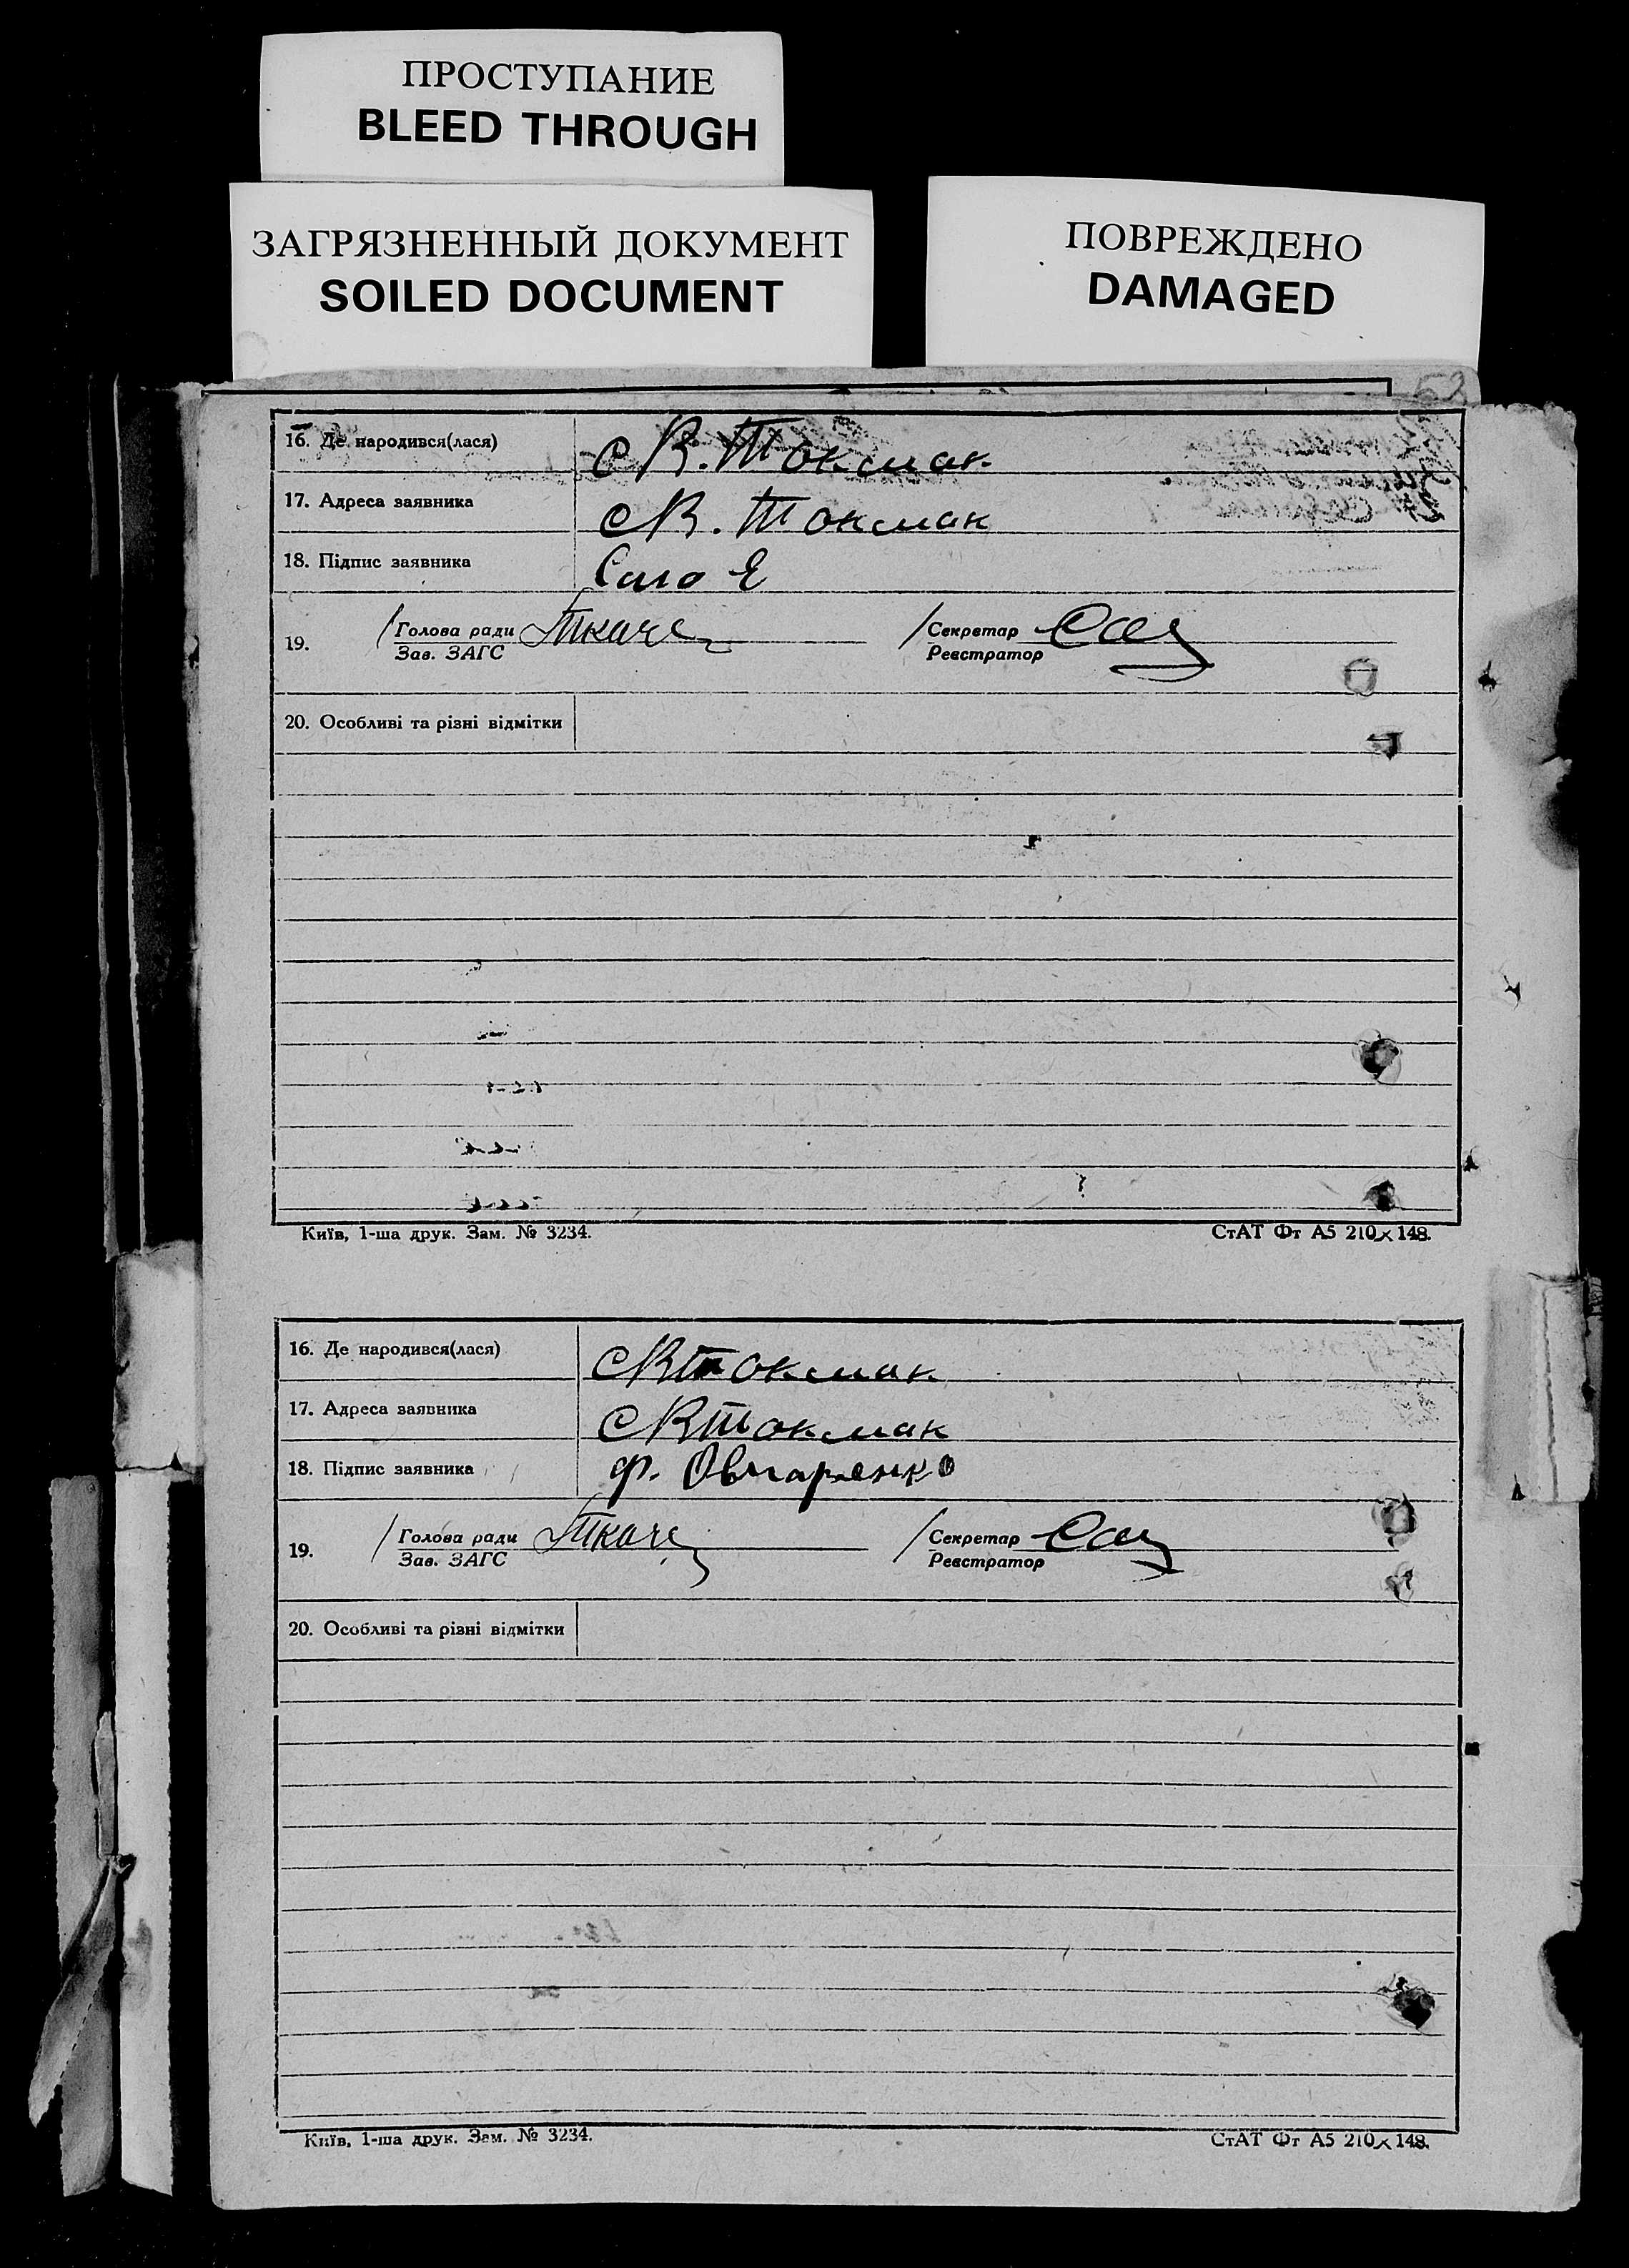 ПРОСТУПАНИЕ
BLEED THROUGH
ЗАГРЯЗНЕННЫЙ ДОКУМЕНТ
SOILED DOCUMENT
ПОВРЕЖДЕНО
DAMAGED
52
16. Де народився(лася) с В. Токмак
17. Адреса заявника с В. Токмак
18. Підпис заявника
19. Голова ради Секретар
Зав. ЗАГС Реєстратор
20. Особливі та різні відмітки
Київ, 1-ша друк. Зам. № 3234. СтАТ Фт А5 210×148.
16. Де народився(лася) с В Токмак
17. Адреса заявника с В Токмак
18. Підпис заявника Ф. Овчаренко
19. Голова ради Секретар
Зав. ЗАГС Реєстратор
20. Особливі та різні відмітки
Київ, 1-ша друк. Зам. № 3234. СтАТ Фт А5 210×148.